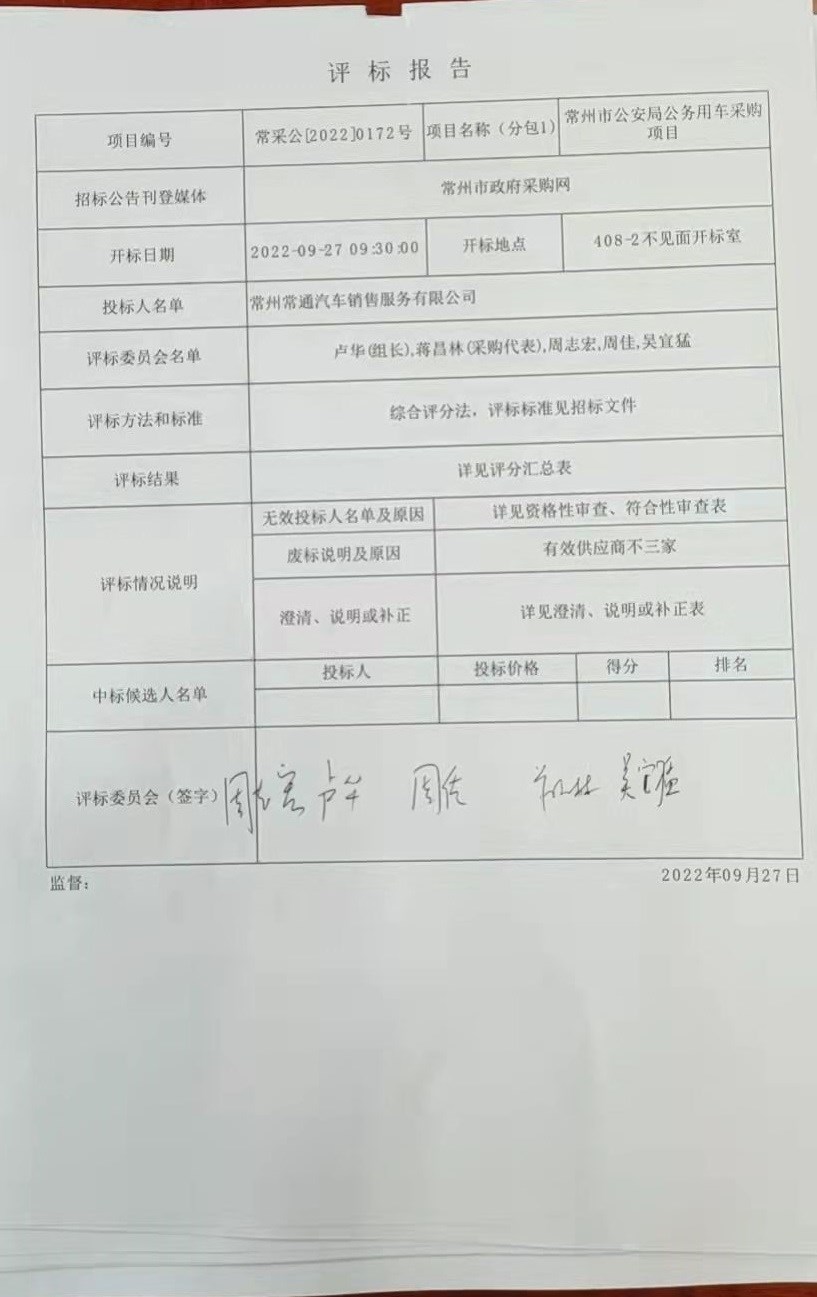 评标报告
项目编号 常采公[2022]0172号 项目名称（分包1） 常州市公安局公务用车采购
项目
招标公告刊登媒体 常州市政府采购网
开标日期 2022-09-27 09:30:00 开标地点 408-2不见面开标室
投标人名单 常州常通汽车销售服务有限公司
评标委员会名单 卢华(组长),蒋昌林(采购代表),周志宏,周佳,吴宜猛
评标方法和标准 综合评分法，评标标准见招标文件
评标结果 详见评分汇总表
评标情况说明
无效投标人名单及原因 详见资格性审查、符合性审查表
废标说明及原因 有效供应商不三家
澄清、说明或补正 详见澄清、说明或补正表
中标候选人名单
投标人 投标价格 得分 排名
评标委员会（签字） 周志宏 卢华 周佳 吴宜猛
监督： 2022年09月27日